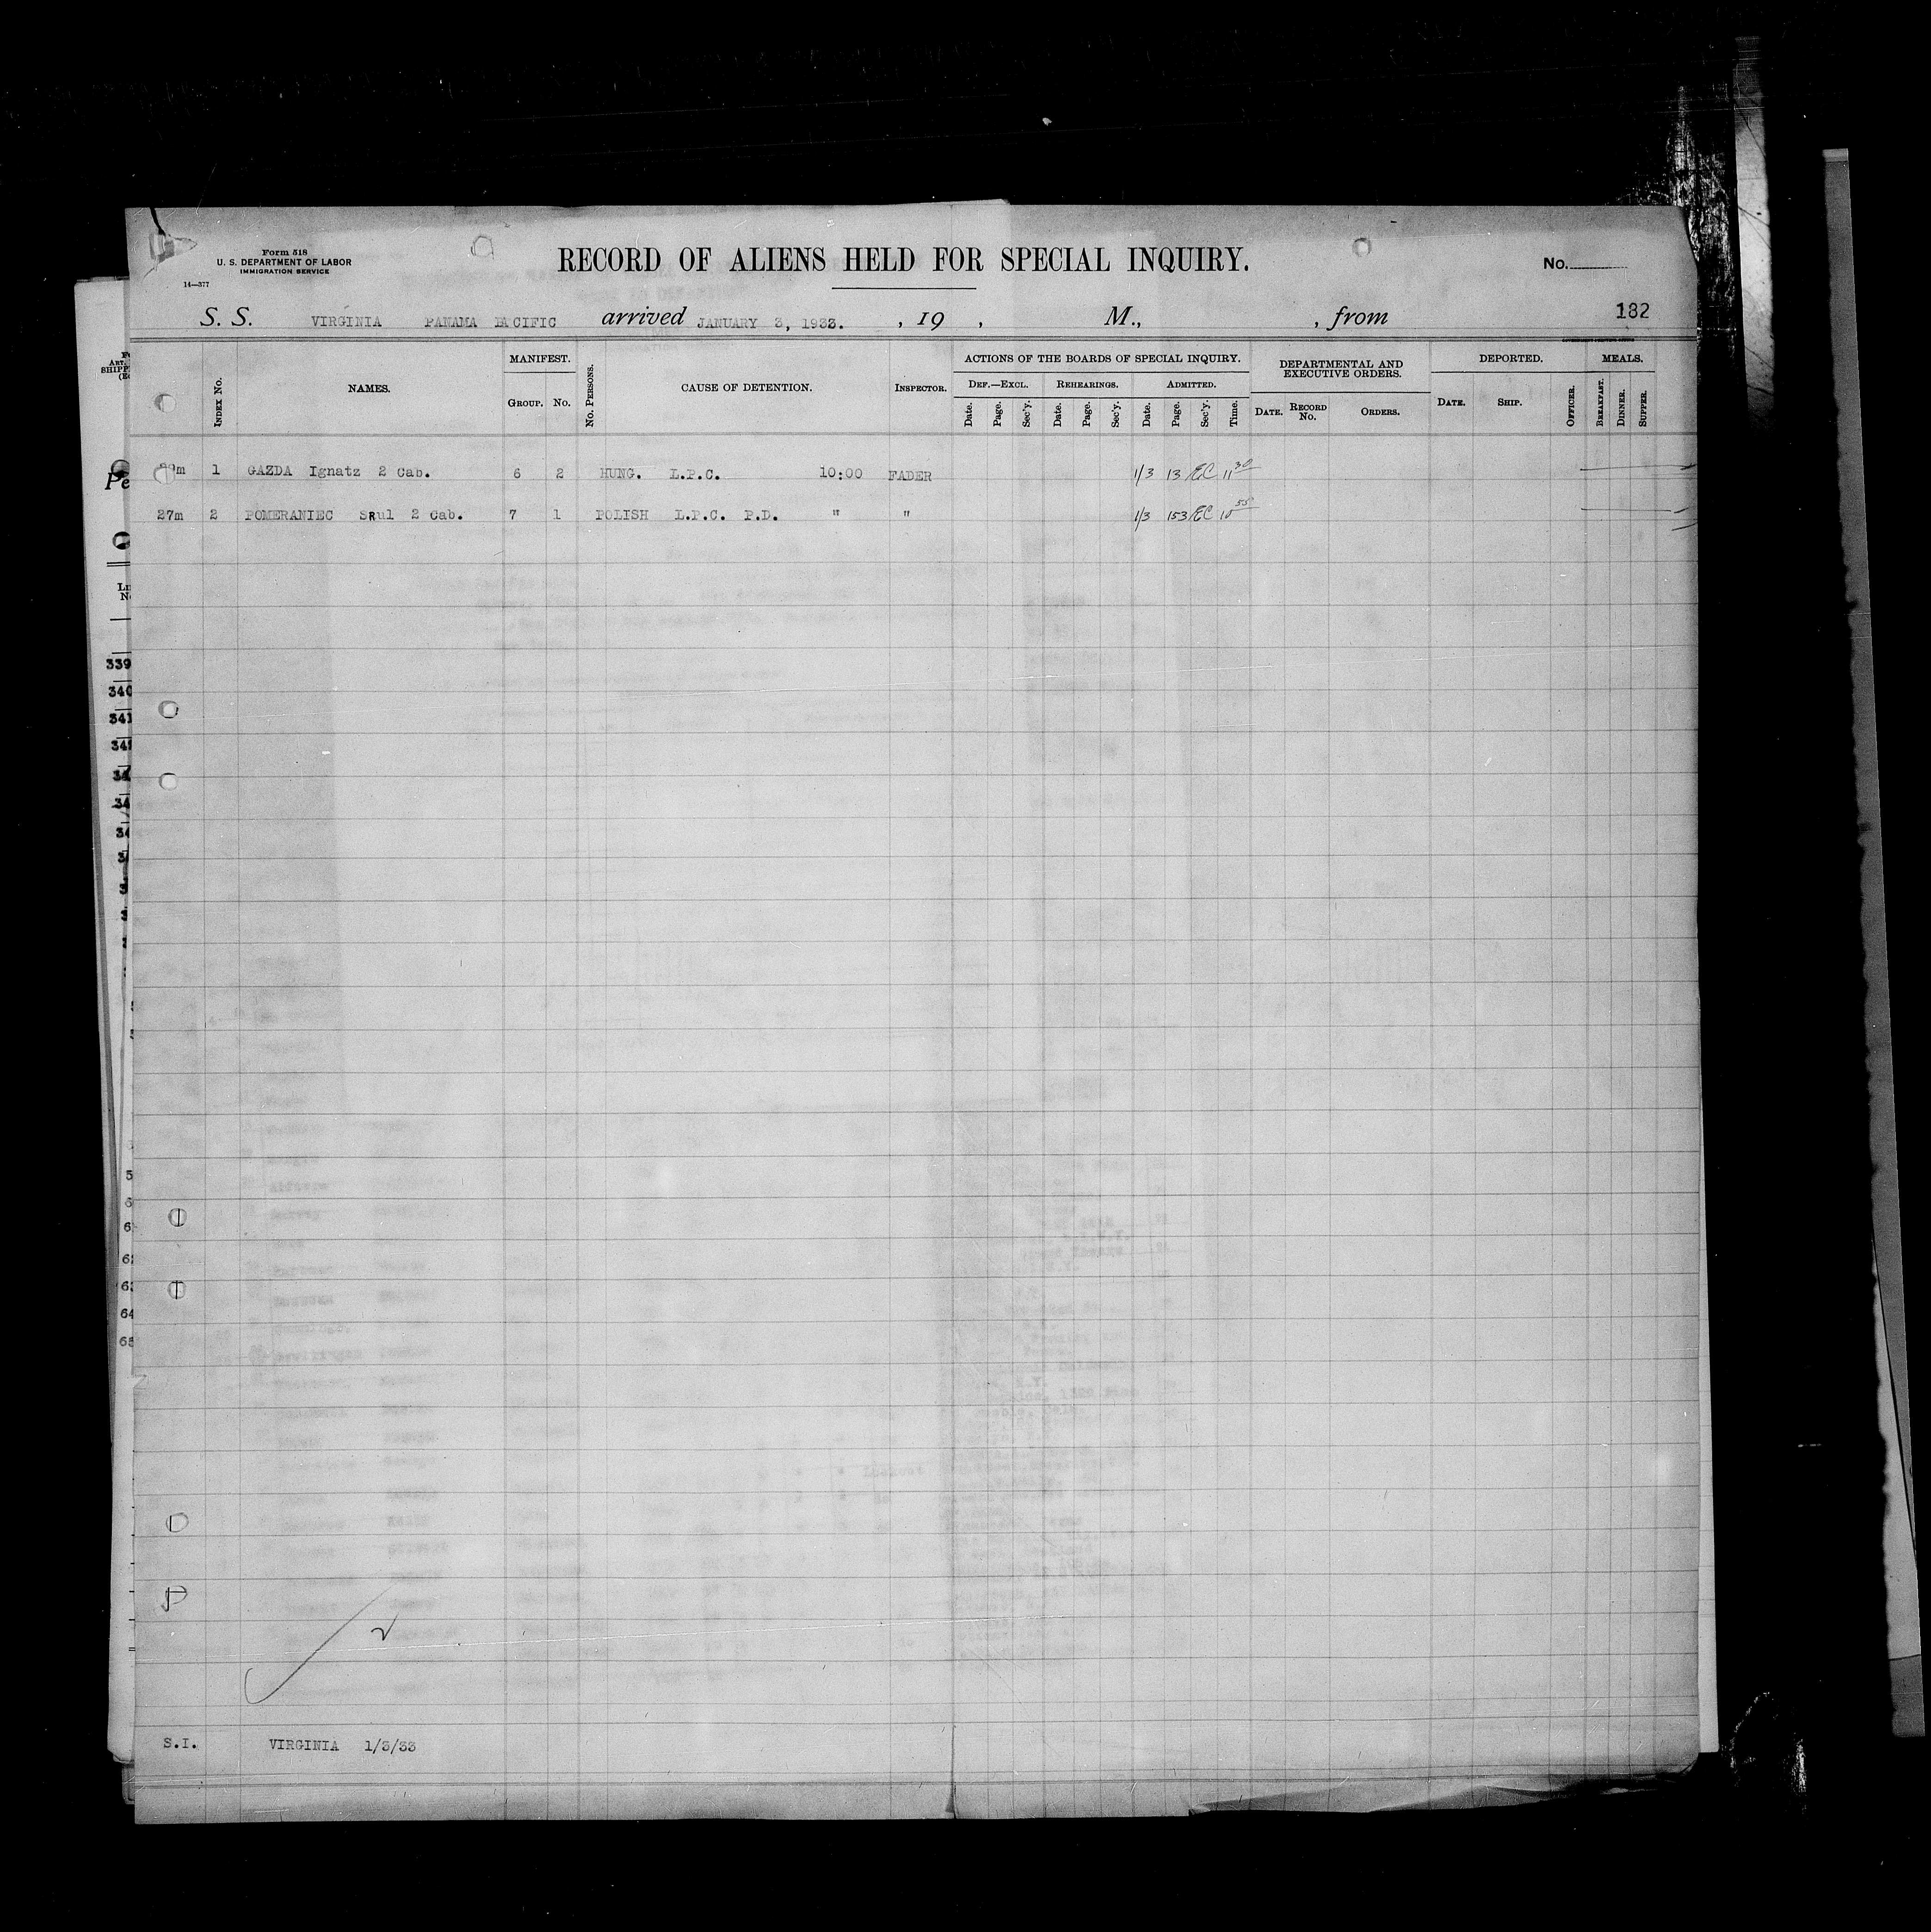 Form 518
U. S. DEPARTMENT OF LABOR
IMMIGRATION SERVICE
14—377
RECORD OF ALIENS HELD FOR SPECIAL INQUIRY.
No.
S. S. VIRGINIA PANAMA PACIFIC arrived JANUARY 3, 1933. , 19 , M., , from 182
INDEX No. NAMES. MANIFEST. GROUP. No. No. PERSONS. CAUSE OF DETENTION. INSPECTOR. ACTIONS OF THE BOARDS OF SPECIAL INQUIRY. DEF.—EXCL. Date. Page. Sec'y. REHEARINGS. Date. Page. Sec'y. ADMITTED. Date. Page. Sec'y. Time. DEPARTMENTAL AND EXECUTIVE ORDERS. DATE. RECORD No. ORDERS. DEPORTED. DATE. SHIP. OFFICER. MEALS. BREAKFAST. DINNER. SUPPER.
1 GAZDA Ignatz 2 Cab. 6 2 HUNG. L.P.C. 10:00 FADER 1/3 13 EC 11 30
27m 2 POMERANIEC SRul 2 Cab. 7 1 POLISH L.P.C. P.D. " " 1/3 153 EC 10 55
339
340
341
2
S.I. VIRGINIA 1/3/33